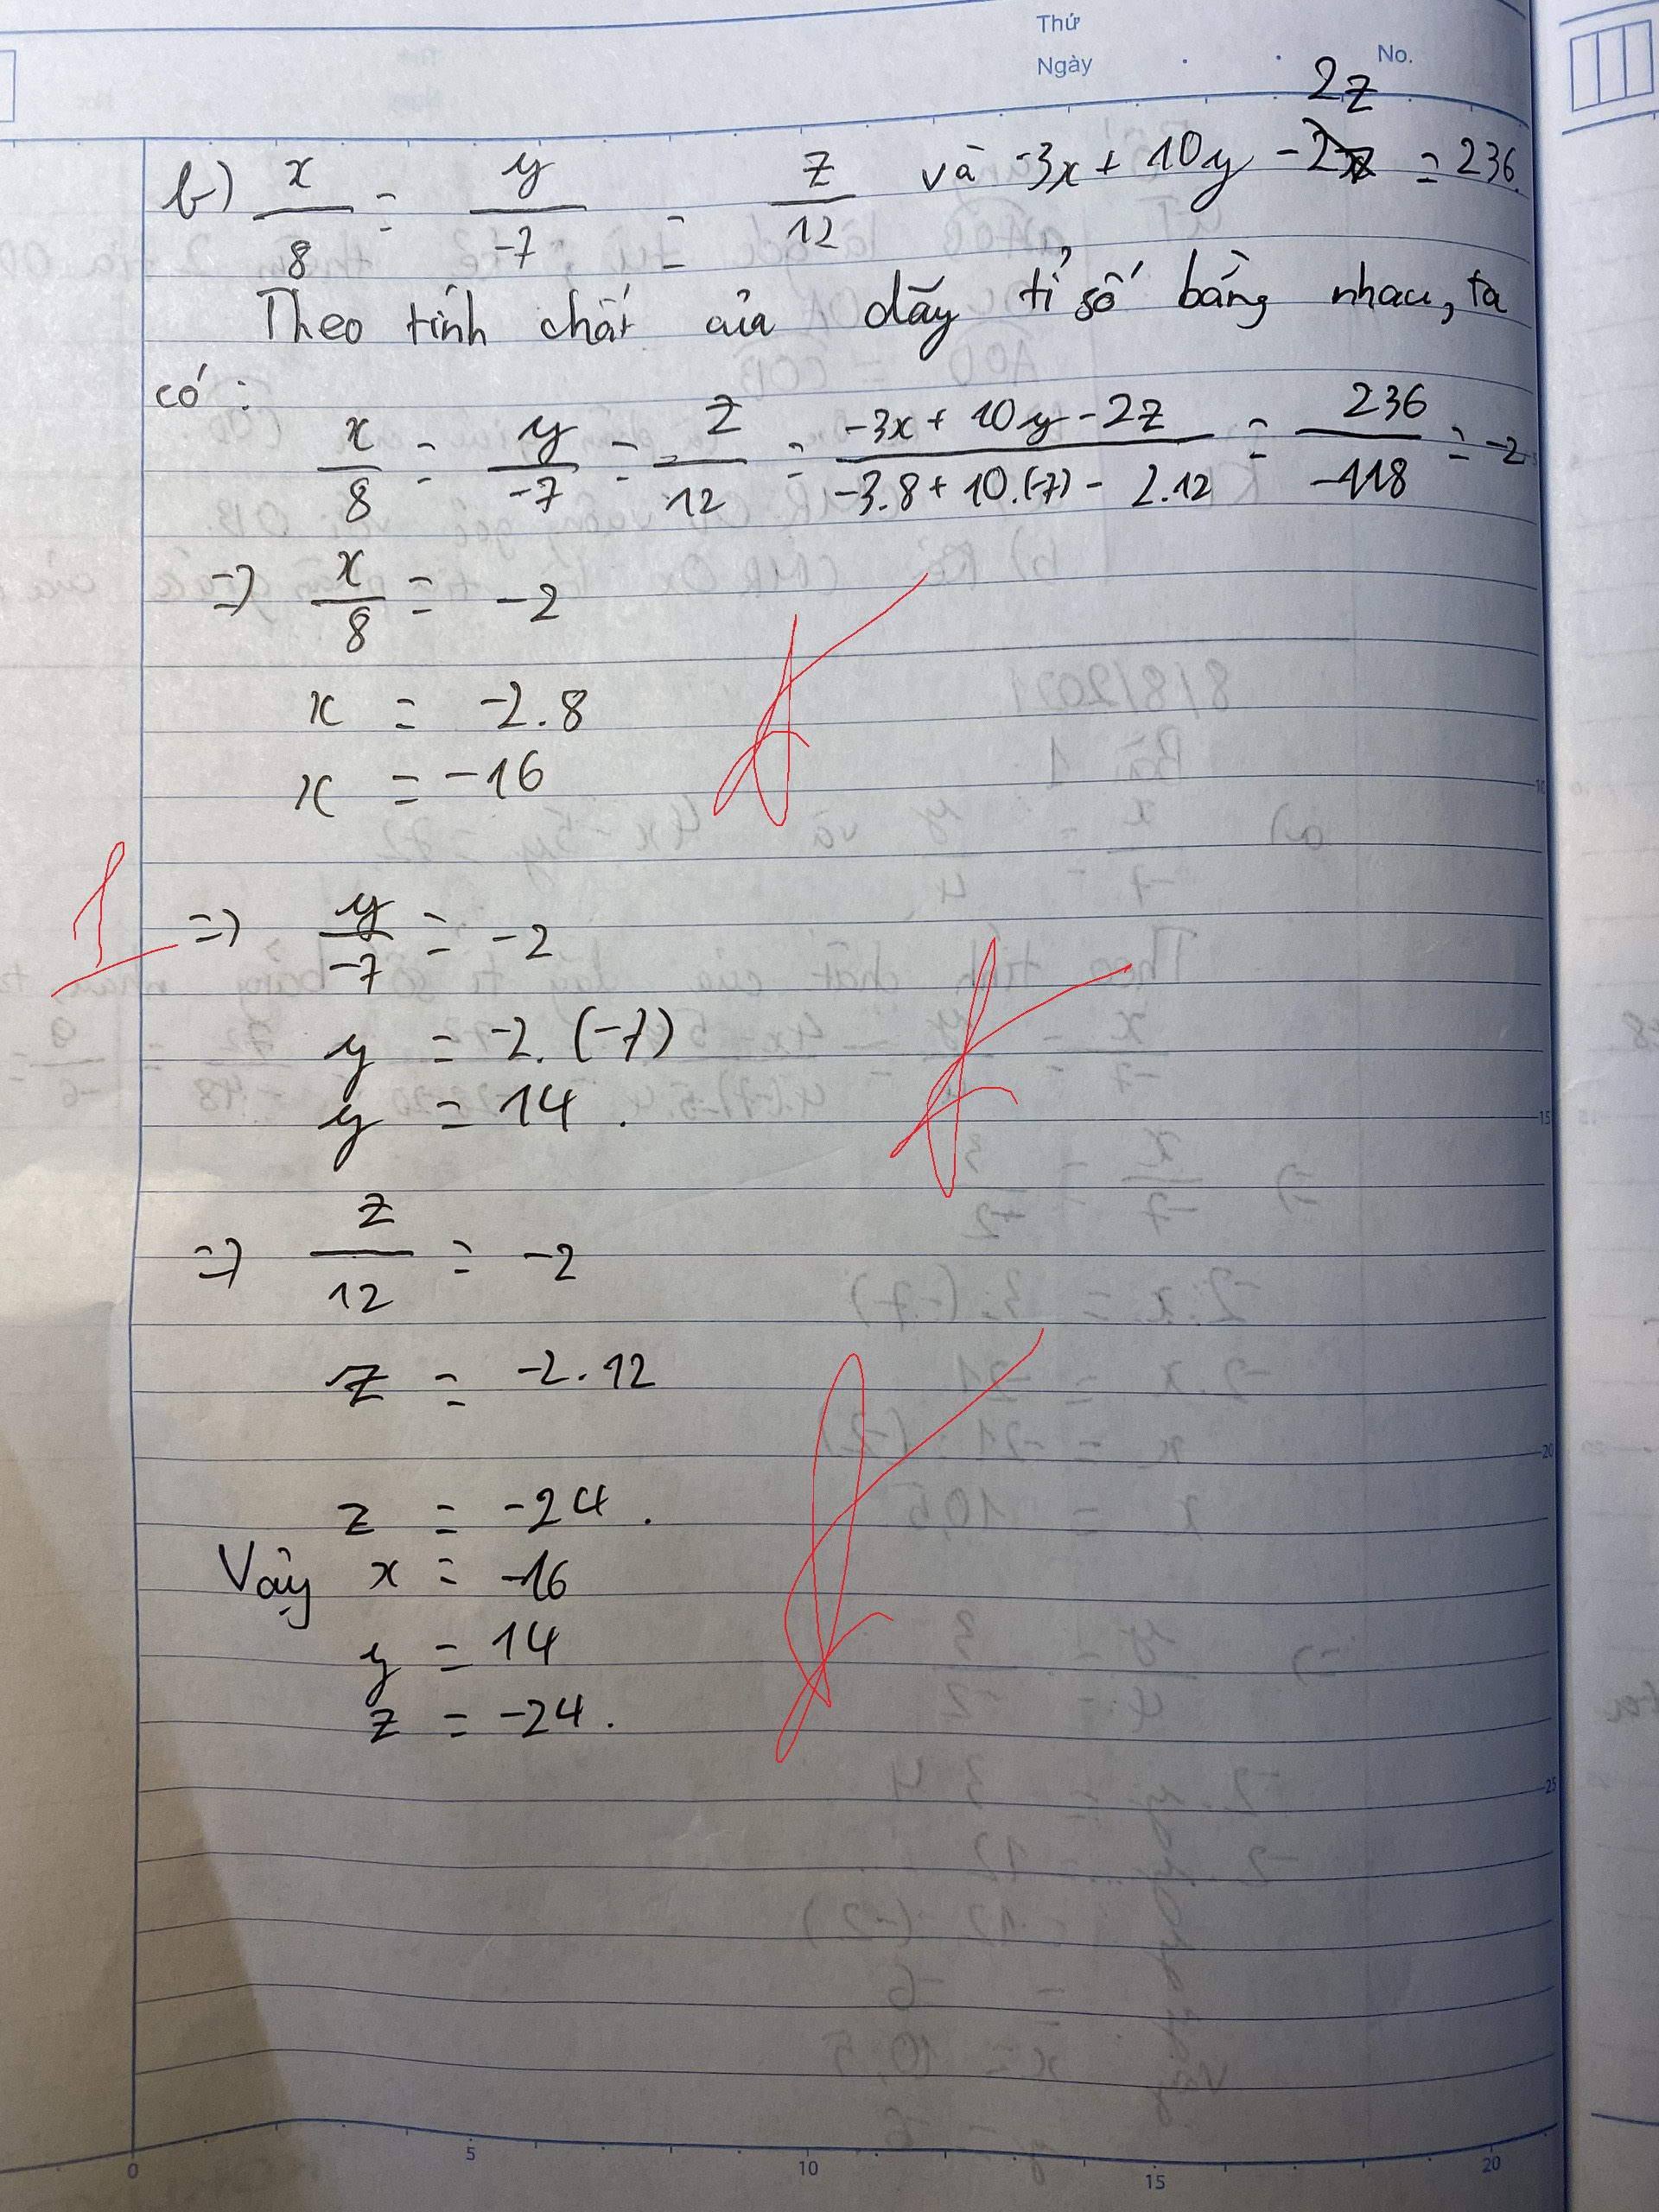 Thứ
Ngày
No.
2z
b) x/8 = y/-7 = z/12 và -3x + 10y - = 236.
Theo tính chất của dãy tỉ số bằng nhau, ta
có:
x/8 = y/-7 = z/12 = (-3x + 10y - 2z)/(-3.8 + 10.(-7) - 2.12) = 236/-118 = -2
=> x/8 = -2
x = -2.8
x = -16
1
=> y/-7 = -2
y = -2.(-7)
y = 14.
=> z/12 = -2
z = -2.12
z = -24.
Vậy x = -16
y = 14
z = -24.
0 5 10 15 20
10
15
20
25